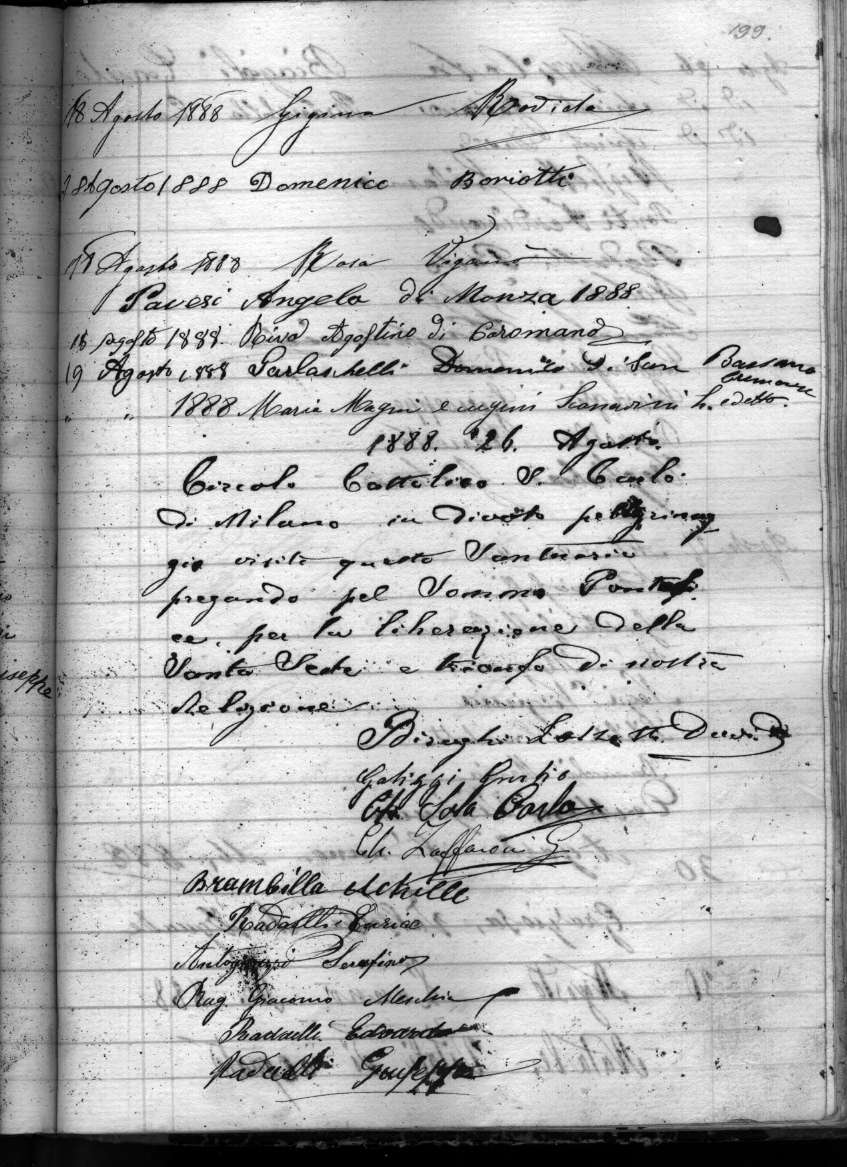 199.
18 Agosto 1888 Gigina Rovida
28 Agosto 1888 Domenico Boriotti
18 Agosto 1888 Rosa Viganò
Pavesi Angelo di Monza 1888
18 Agosto 1888. Riva Agostino di
19 Agosto 1888 Domenico di San Bassano
" " 1888 Maria Magni e cugini
1888. 26. Agosto.
Circolo Cattolico S. Carlo
di Milano in divoto pellegrinag
gio visitò questo Santuario
pregando pel Sommo Pontefi
ce, per la liberazione della
Santa Sede e trionfo di nostra
Religione
David
Ch. Sola Carlo
Ch. Zaffaroni G
Brambilla Achille
Radaelli Enrico
Serafino
Rag. Giacomo Meschia
Radaelli Edoardo
Radaelli Giuseppe